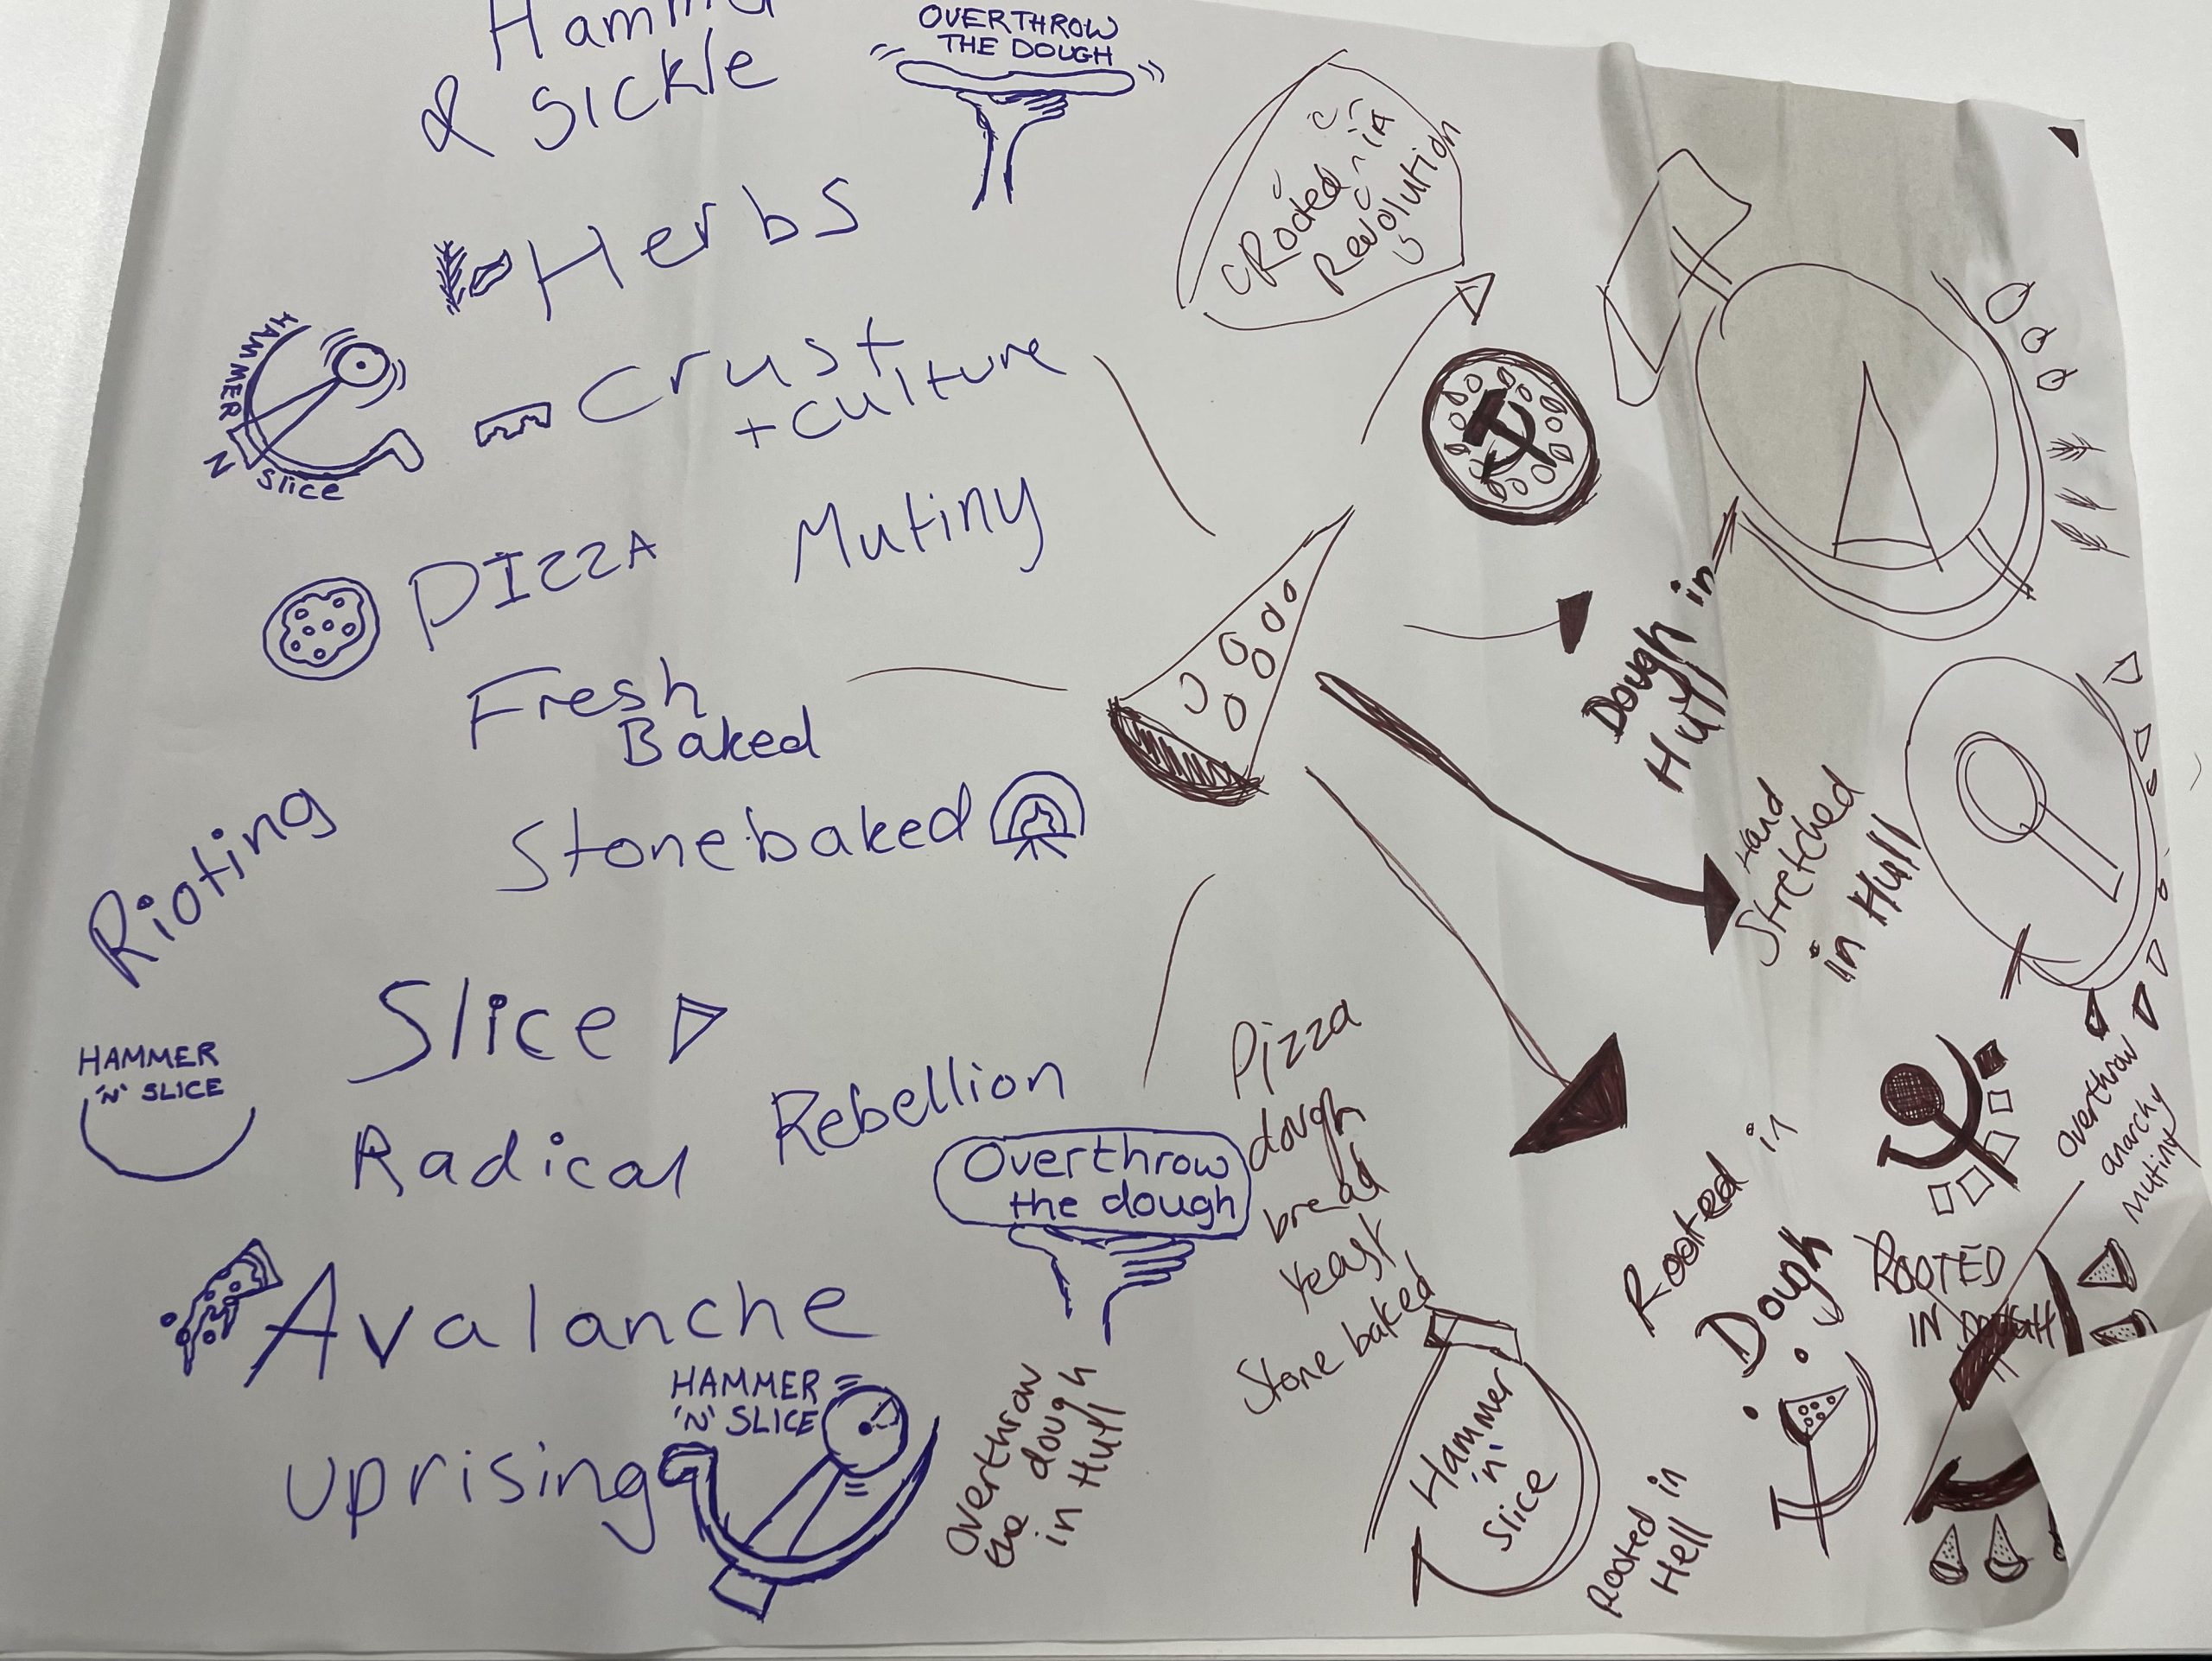 Hammer
& Sickle
OVERTHROW
THE DOUGH
Herbs
HAMMER
N
Slice
Crust
+ culture
PIZZA
Mutiny
Fresh
Baked
Stonebaked
Rioting
Slice
HAMMER
'N' SLICE
Radical
Rebellion
Overthrow
the dough
Avalanche
HAMMER
'N' SLICE
uprising
Overthrow
the dough
in Hull
Rooted in
Revolution
Dough in
Hull
Hand
Stretched
in Hull
Pizza
dough
bread
Yeast
Stone baked
Hammer
'n'
Slice
Rooted in
Dough
Rooted in
Hell
Overthrow
anarchy
mutiny
ROOTED
IN DOUGH